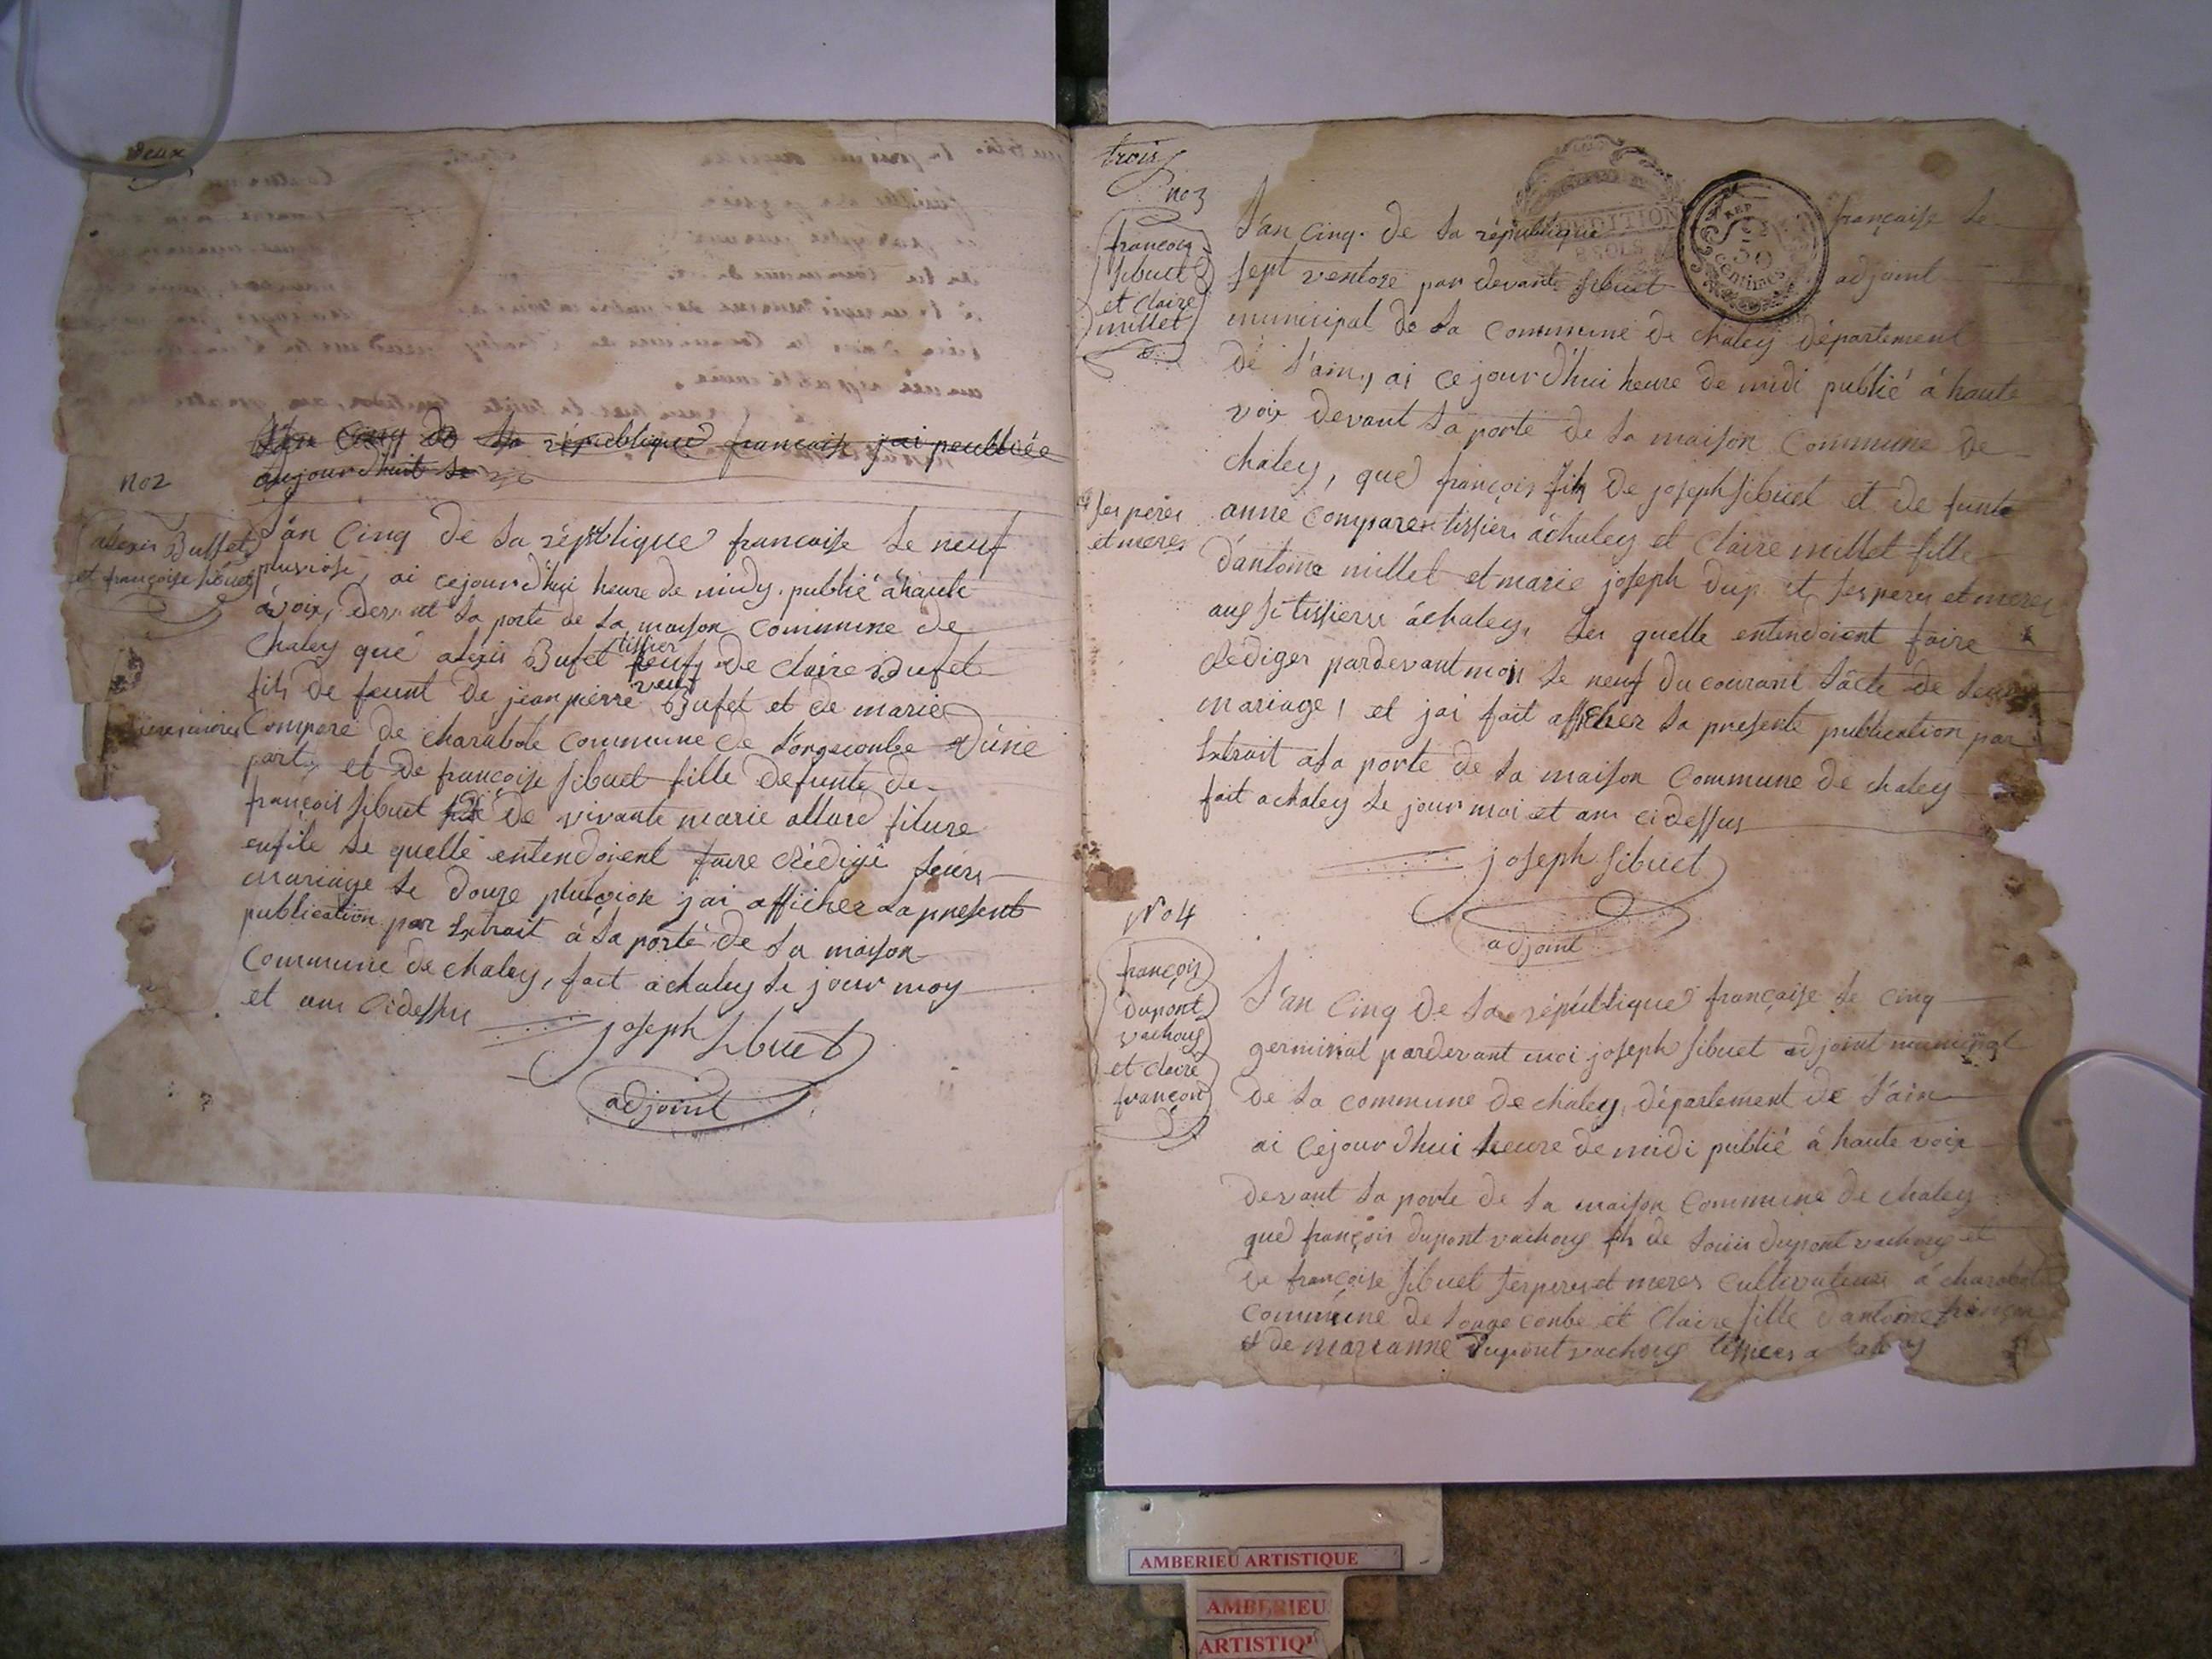 deux
L'an cinq de la république francaise jai peubliée
aujourdhuit le
no 2
alexis Buffet
et françoise sibuet
L'an cinq de la république francaise le neuf
pluviose, ai cejourd'hui heure de midy publié à haute
àvoix, devant la porte de la maison commune de
chaley que alexis Bufet tissier veuf de claire Bufet
fils de feunt de jean pierre Bufet et de marie
compere de charabote commune de longecombe d'une
part, et de françoise sibuet fille defunte de
françois sibuet de vivante marie allard
le quelle entendoient faire rédigé leurs
mariage le douze pluviose jai afficher la present
publication par extrait à la porte de la maison
commune de chaley, fait a chaley le jour moy
et ans cidessus
joseph sibuet
adjoint
trois
no 3
françois
sibuet
et claire
millet
L'an cinq de la république française le
sept ventose par devant sibuet adjoint
municipal de la commune de chaley département
de l'ain, ai cejourd'hui heure de midi publié à haute
voix devant la porte de la maison commune de
chaley, que françois fils de joseph sibuet et de funte
ses peres
et meres
anne compare tissiers àchaley et claire millet fille
d'antoine millet et marie joseph ses peres et meres
aussi tissiers àchaley, les quelle entendoient faire
rédiger pardevant moi le neuf du courant l'acte de leurs
mariage, et jai fait afficher la presente publication par
extrait ala porte de la maison commune de chaley
fait a chaley le jour moi et ans cidessus
joseph sibuet
adjoint
No 4
françois
dupont
vachoug
et claire
françon
L'an cinq de la république française le cinq
germinal pardevant moi joseph sibuet adjoint municipal
de la commune de chaley, département de l'ain
ai cejourdhui heure de midi publié à haute voix
devant la porte de la maison commune de chaley
que françois dupont vachoug fils de louis dupont vachoug et
de françoise sibuet ses peres et meres cultivateurs à charabote
commune de longecombe et claire fille d'antoine françon
et de marianne dupont vachoug tissiers a chaley
REP. FRA
50
centimes
EXPEDITION
8 SOLS
AMBERIEU ARTISTIQUE
AMBERIEU
ARTISTIQU